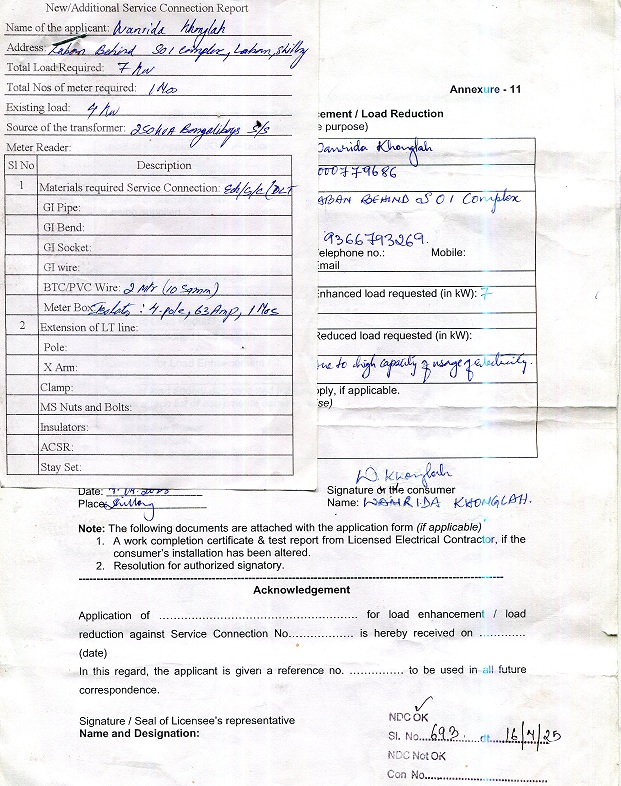 New/Additional Service Connection Report
Name of the applicant: Wanrida Khonglah
Address: Laban Behind SOI Complex, Laban, Shillong
Total Load Required: 7 Kw
Total Nos of meter required: 1 No
Existing load: 4 Kw
Source of the transformer: 250 KVA S/s
Meter Reader:
Sl No Description
1 Materials required Service Connection:
GI Pipe:
GI Bend:
GI Socket:
GI wire:
BTC/PVC Wire: 2 Mtr (10 Sqmm)
Meter Box: 4-pole, 63 Amp, 1 Nos
2 Extension of LT line:
Pole:
X Arm:
Clamp:
MS Nuts and Bolts:
Insulators:
ACSR:
Stay Set:
Annexure - 11
cement / Load Reduction
e purpose)
Wanrida Khonglah
000779686
ABAN BEHIND SOI Complex
9366793269.
elephone no.: Mobile:
Email
Enhanced load requested (in kW): 7
Reduced load requested (in kW):
ue to high capacity of usage of electricity.
pply, if applicable.
se)
W. Khonglah
Date:
Signature of the consumer
Place: Shillong
Name: WANRIDA KHONGLAH.
Note: The following documents are attached with the application form (if applicable)
1. A work completion certificate & test report from Licensed Electrical Contractor, if the
consumer's installation has been altered.
2. Resolution for authorized signatory.
Acknowledgement
Application of ........................................ for load enhancement / load
reduction against Service Connection No................ is hereby received on ............
(date)
In this regard, the applicant is given a reference no. .............. to be used in all future
correspondence.
Signature / Seal of Licensee's representative
Name and Designation:
NDC OK
Sl. No...693.... dt. 16/4/25
NDC Not OK
Con No.............................